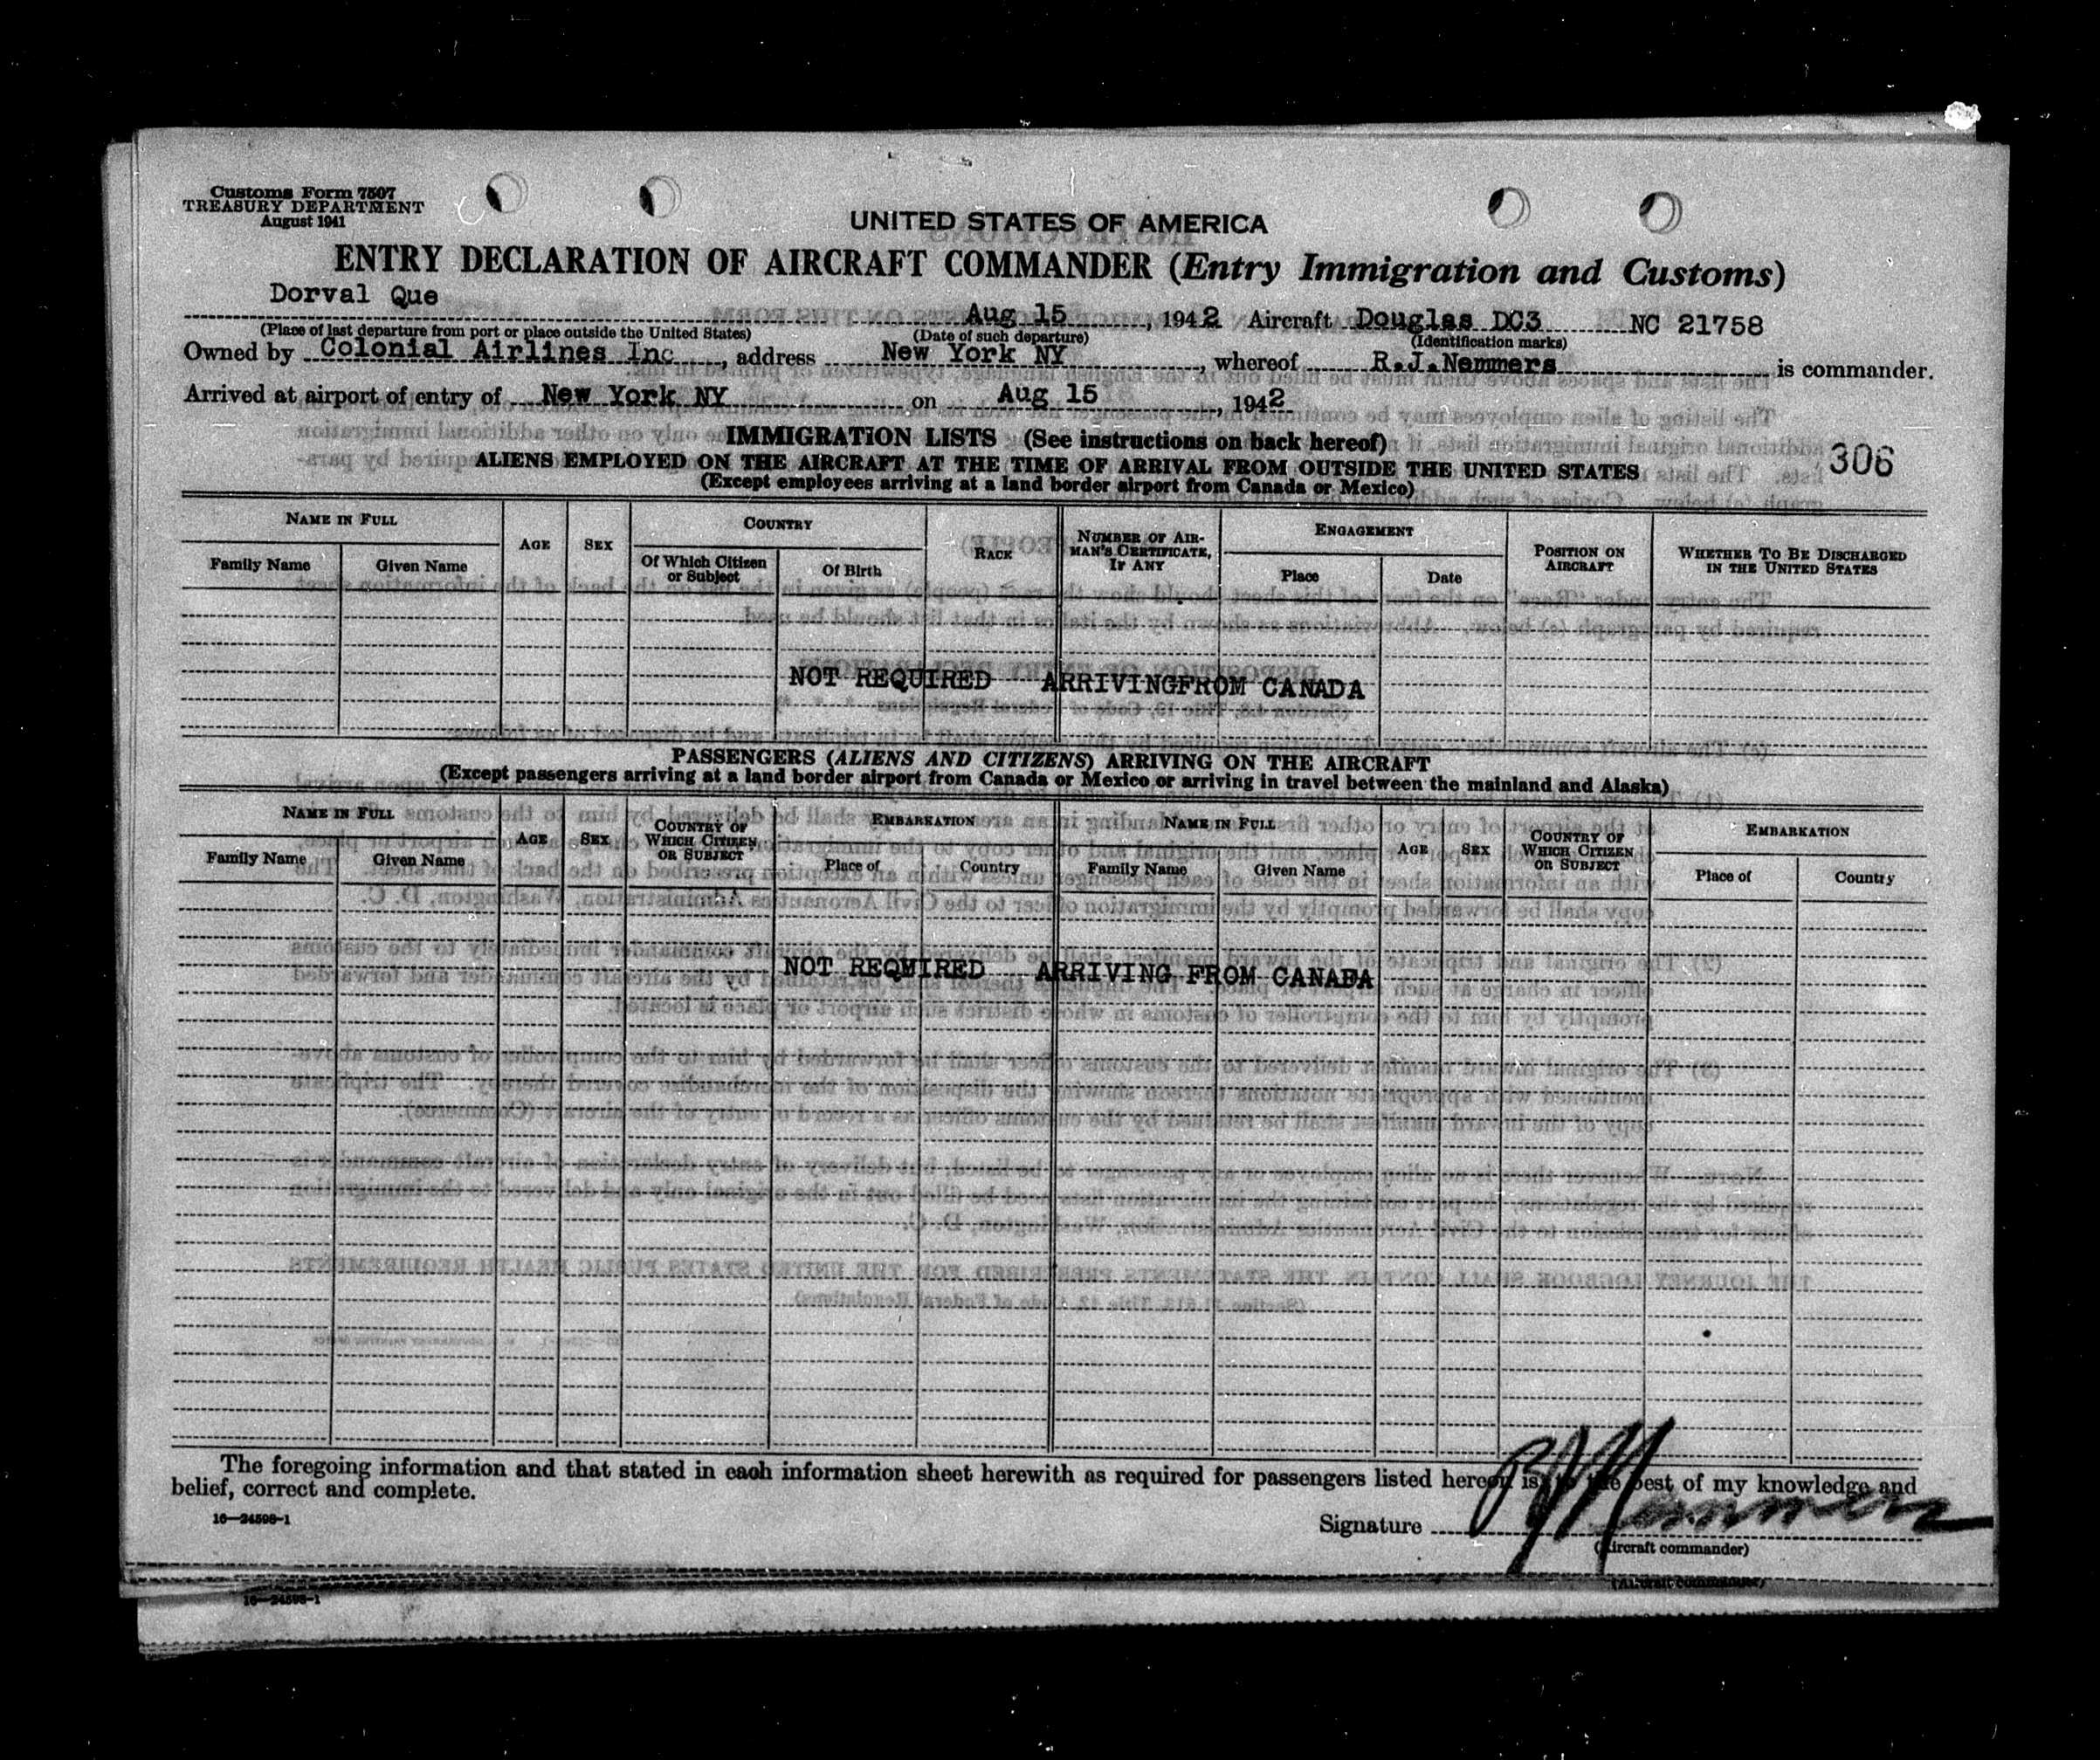 Customs Form 7507
TREASURY DEPARTMENT
August 1941
UNITED STATES OF AMERICA
ENTRY DECLARATION OF AIRCRAFT COMMANDER (Entry Immigration and Customs)
Dorval Que Aug 15, 1942 Aircraft Douglas DC3 NC 21758
(Place of last departure from port or place outside the United States) (Date of such departure) (Identification marks)
Owned by Colonial Airlines Inc, address New York NY, whereof R.J.Nemmers is commander.
Arrived at airport of entry of New York NY on Aug 15, 1942
IMMIGRATION LISTS (See instructions on back hereof)
306
ALIENS EMPLOYED ON THE AIRCRAFT AT THE TIME OF ARRIVAL FROM OUTSIDE THE UNITED STATES
(Except employees arriving at a land border airport from Canada or Mexico)
NAME IN FULL AGE SEX COUNTRY RACE NUMBER OF AIRMAN'S CERTIFICATE, IF ANY ENGAGEMENT POSITION ON AIRCRAFT WHETHER TO BE DISCHARGED IN THE UNITED STATES
Family Name Given Name Of Which Citizen or Subject Of Birth Place Date
NOT REQUIRED ARRIVINGFROM CANADA
PASSENGERS (ALIENS AND CITIZENS) ARRIVING ON THE AIRCRAFT
(Except passengers arriving at a land border airport from Canada or Mexico or arriving in travel between the mainland and Alaska)
NAME IN FULL AGE SEX COUNTRY OF WHICH CITIZEN OR SUBJECT EMBARKATION NAME IN FULL AGE SEX COUNTRY OF WHICH CITIZEN OR SUBJECT EMBARKATION
Family Name Given Name Place of Country Family Name Given Name Place of Country
NOT REQUIRED ARRIVING FROM CANADA
The foregoing information and that stated in each information sheet herewith as required for passengers listed hereon is, to the best of my knowledge and
belief, correct and complete.
16—24598-1
Signature RJNemmers
(Aircraft commander)
(Aircraft commander)
16—24598-1